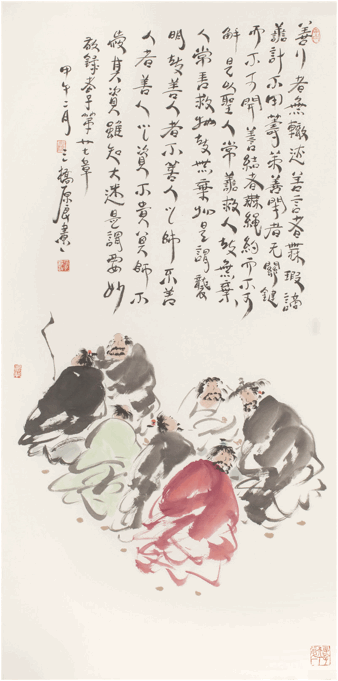 善行者無轍迹善言者無瑕謫
善計不用籌策善閉者无關鍵
而不可開善結者無繩約而不可
解是以聖人常善救人故無棄
人常善救物故無棄物是謂襲
明故善人者不善人之師不善
人者善人之資不貴其師不
愛其資雖知大迷是謂要妙
錄老子第廿七章
甲午二月